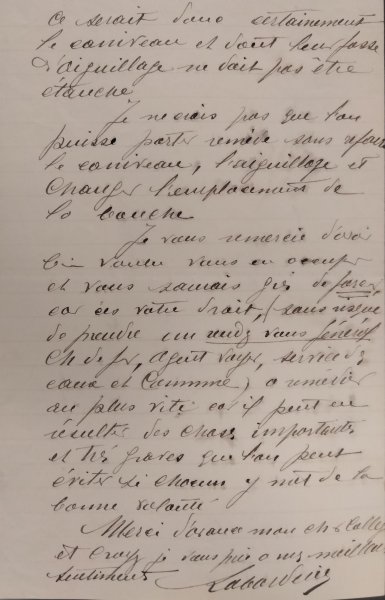 Ce serait donc certainement
le caniveau et dont leur fosse
d'aiguillage ne doit pas être
étanche
Je ne crois pas que l'on
puisse porter remède sans refaire
le caniveau, l'aiguillage et
changer l'emplacement de
la bouche
Je vous remercie d'avoir
bien voulu vous en occuper
et vous saurais gré de
car votre droit, (sans risque
de prendre un rendez vous général
Ch de fer, Agent voyer, service des
eaux et Commune) a remédier
au plus vite car il peut en
résulter des choses importantes
et très graves que l'on peut
éviter si chacun y met de la
bonne volonté
Merci d'avance mon cher
et croyez je vous prie a mes meilleurs
sentiments